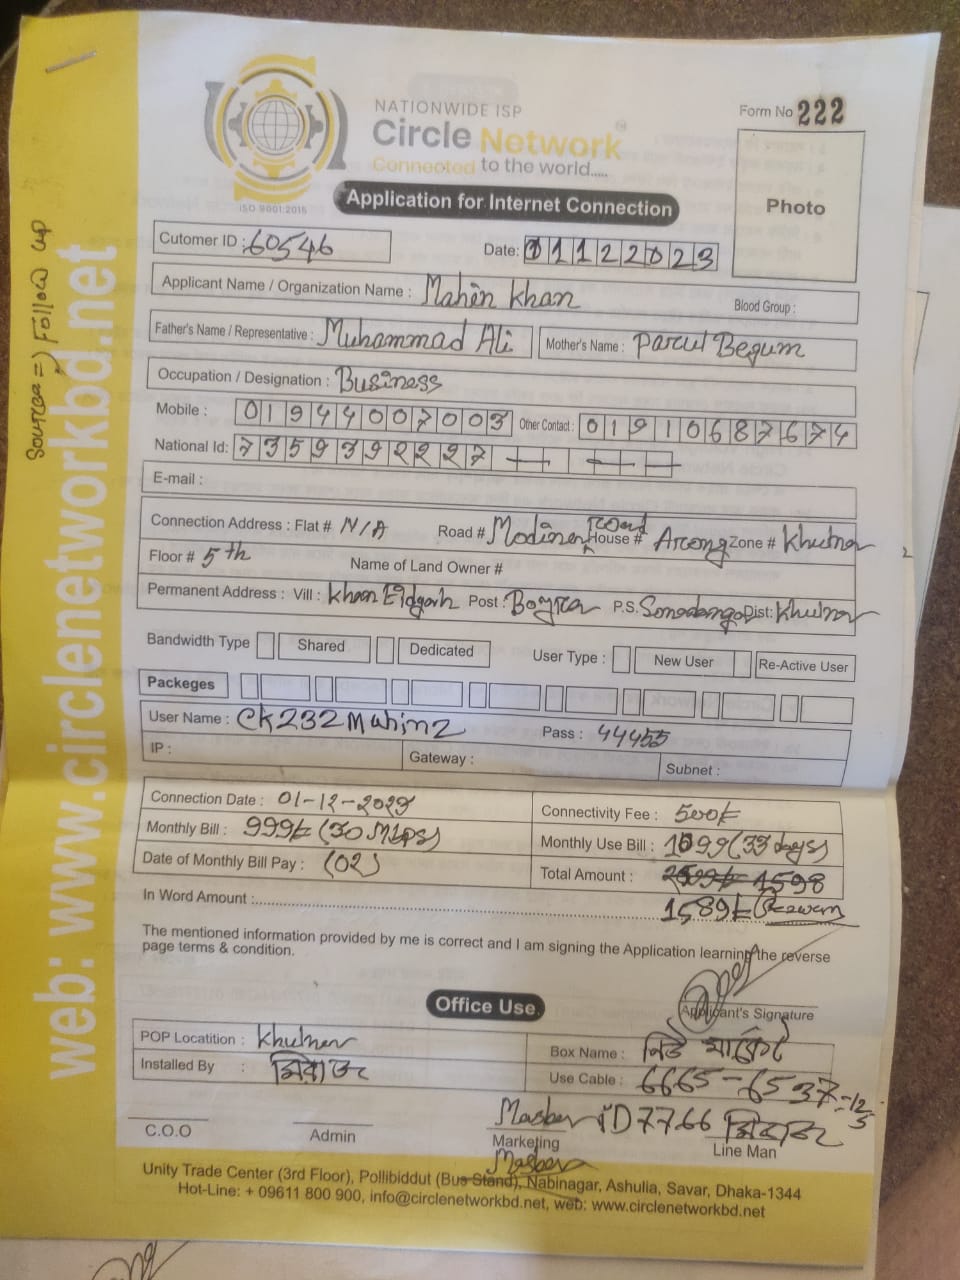 NATIONWIDE ISP
Circle Network
Connected to the world.....
ISO 9001:2015
Form No 222
Photo
Application for Internet Connection
Cutomer ID : 60546
Date: 01122023
Applicant Name / Organization Name : Mahin Khan
Blood Group :
Father's Name / Representative : Muhammad Ali
Mother's Name : Parul Begum
Occupation / Designation : Business
Mobile : 01944007003 Other Contact : 01910687674
National Id: 7359392227
E-mail :
Connection Address : Flat # N/A Road # Road House # Zone # Khulna
Floor # 5th Name of Land Owner #
Permanent Address : Vill : Khan Eidgah Post : Boyra P.S. Sonadanga Dist: Khulna
Bandwidth Type Shared Dedicated User Type : New User Re-Active User
Packeges
User Name : CK232Mahin2 Pass : 44455
IP : Gateway : Subnet :
Connection Date : 01-12-2023 Connectivity Fee : 500/=
Monthly Bill : 999/= (30 Mbps) Monthly Use Bill : 1099 (33 days)
Date of Monthly Bill Pay : (02) Total Amount : 1598
In Word Amount : 1589/=
The mentioned information provided by me is correct and I am signing the Application learning the reverse
page terms & condition.
Applicant's Signature
Office Use
POP Locatition : Khulna Box Name : মার্কেট
Installed By : মিরাজ Use Cable : 6665-6537
ID 7766 মিরাজ
C.O.O Admin Marketing Line Man
Unity Trade Center (3rd Floor), Pollibiddut (Bus Stand), Nabinagar, Ashulia, Savar, Dhaka-1344
Hot-Line: + 09611 800 900, info@circlenetworkbd.net, web: www.circlenetworkbd.net
web: www.circlenetworkbd.net
Source => Follow up